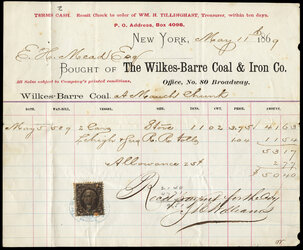 2
TERMS CASH. Remit Check to order of WM. H. TILLINGHAST, Treasurer, within ten days.
P. O. Address, Box 4098.
NEW YORK, May 11th 1869
E. H. Mead Esq
BOUGHT OF The Wilkes-Barre Coal & Iron Co.
All Sales subject to Company's printed conditions.
Office, No. 80 Broadway.
Wilkes-Barre Coal. At Mauch Chunk
DATE. WAY-BILL. VESSEL. SIZE. TONS. CWT. PRICE. AMOUNT.
May 5 2 Cars Stove 11 02 375 41 63
Lehigh & R.R. tolls 104 11 54
53 17
Allowance 25¢ 2 77
$50 40
Rec'd payment for the Coy
Williams